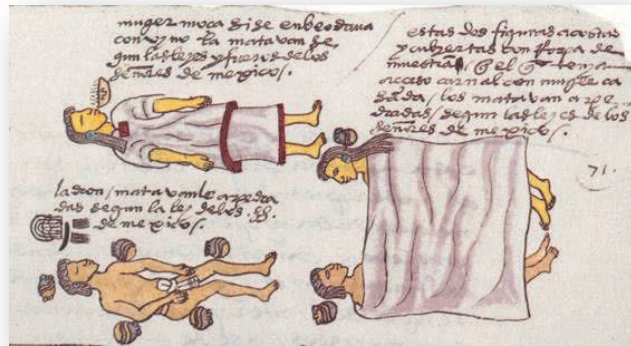 muger moca si se enbeodava
con vyno la matavan se
gun las leyes y fueros de los
señores de mexico /.
estas dos figuras acostadas
y cubiertas con Ropa de
muestra / q el q tenia
acceso carnal con muger ca
sada / los matavan a pe
dradas / segun las leyes de los
señores de mexico /.
71.
ladron / matavanle a pedra
das segun la ley de los
de mexico /.